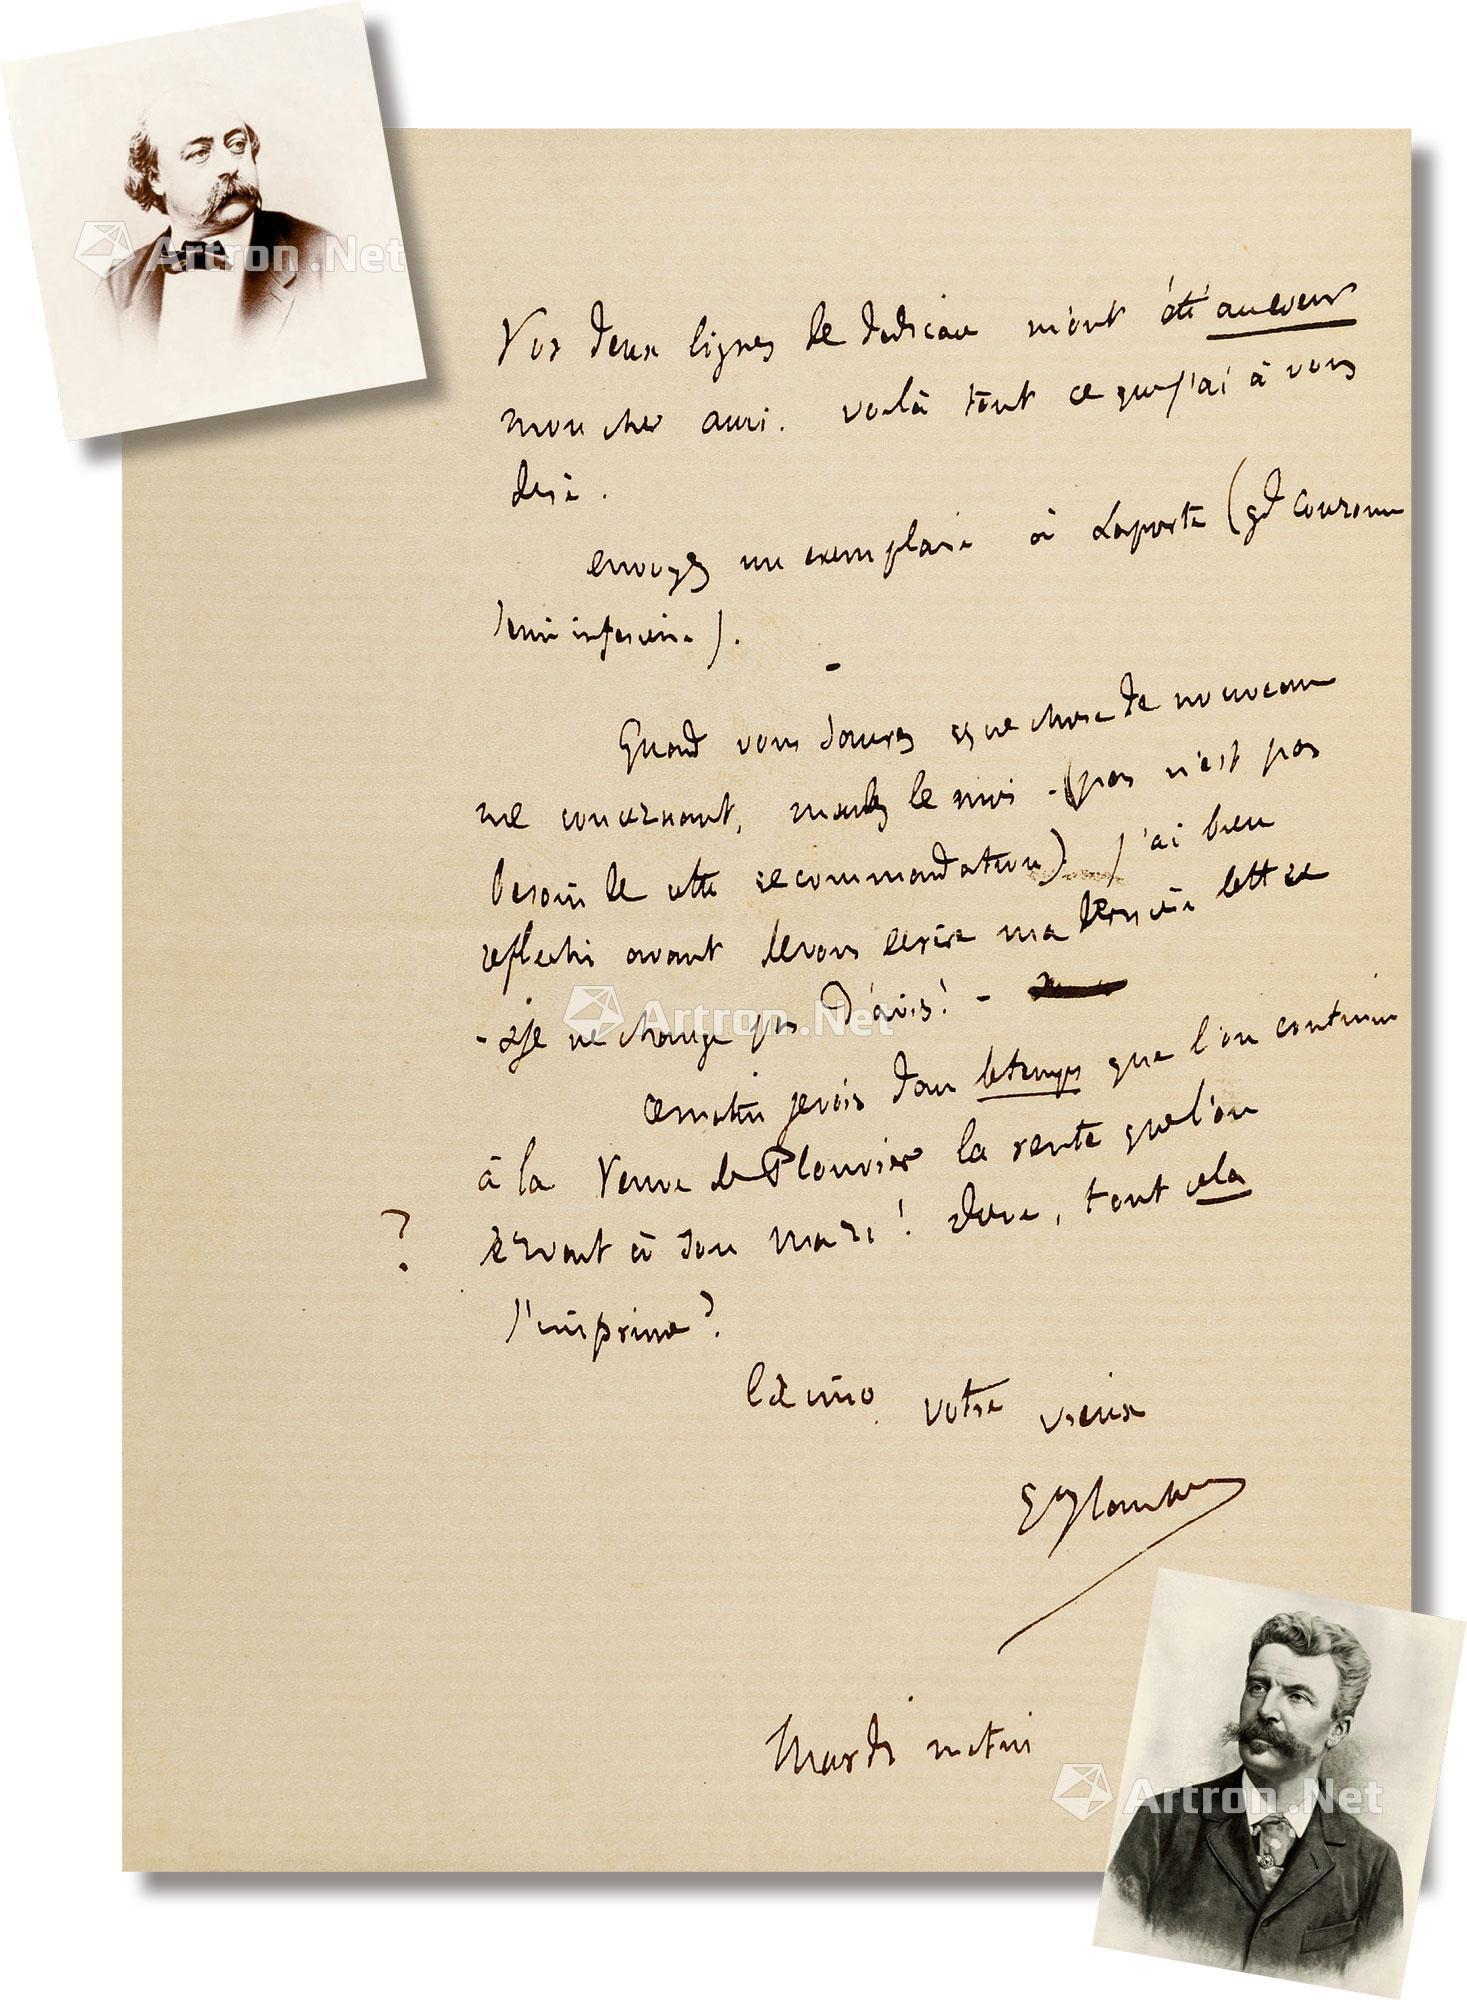 Vos deux lignes de dédicace m'ont été au cœur
mon cher ami. voilà tout ce que j'ai à vous
dire.
envoyez un exemplaire à Laporte (gd couronne
Seine inférieure).
Quand vous saurez qque chose de nouveau
me concernant, mandez le moi - (pas n'est pas
besoin de cette recommandation). j'ai bien
reflechi avant de vous ecrire ma dernière lettre
- & je ne change pas d'avis! -
ce matin je vois dans le temps que l'on continue
à la Veuve de Plouvier la rente que l'on
servait à son mari! donc, tout cela
?
s'imprime?
votre vieux
Gve Flaubert
Mardi matin
Artron.Net
Artron.Net
Artron.Net